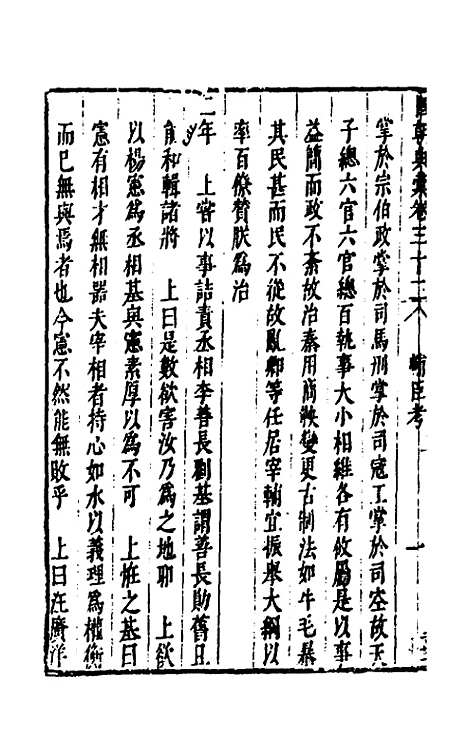 皇朝典彙卷三十二 輔臣考 一
掌於宗伯政掌於司馬刑掌於司寇工掌於司空故天
子總六官六官總百執事大小相維各有攸屬是以事
益簡而政不紊故治秦用商鞅變更古制法如牛毛暴
其民甚而民不從故亂卿等任居宰輔宜振舉大綱以
率百僚贊朕為治
二年 上嘗以事詰責丞相李善長劉基謂善長勛舊且
能和輯諸將 上曰是數欲害汝乃為之地耶 上欲
以楊憲為丞相基與憲素厚以為不可 上怪之基曰
憲有相才無相器夫宰相者持心如水以義理為權衡
而已無與焉者也今憲不然能無敗乎 上曰汪廣洋